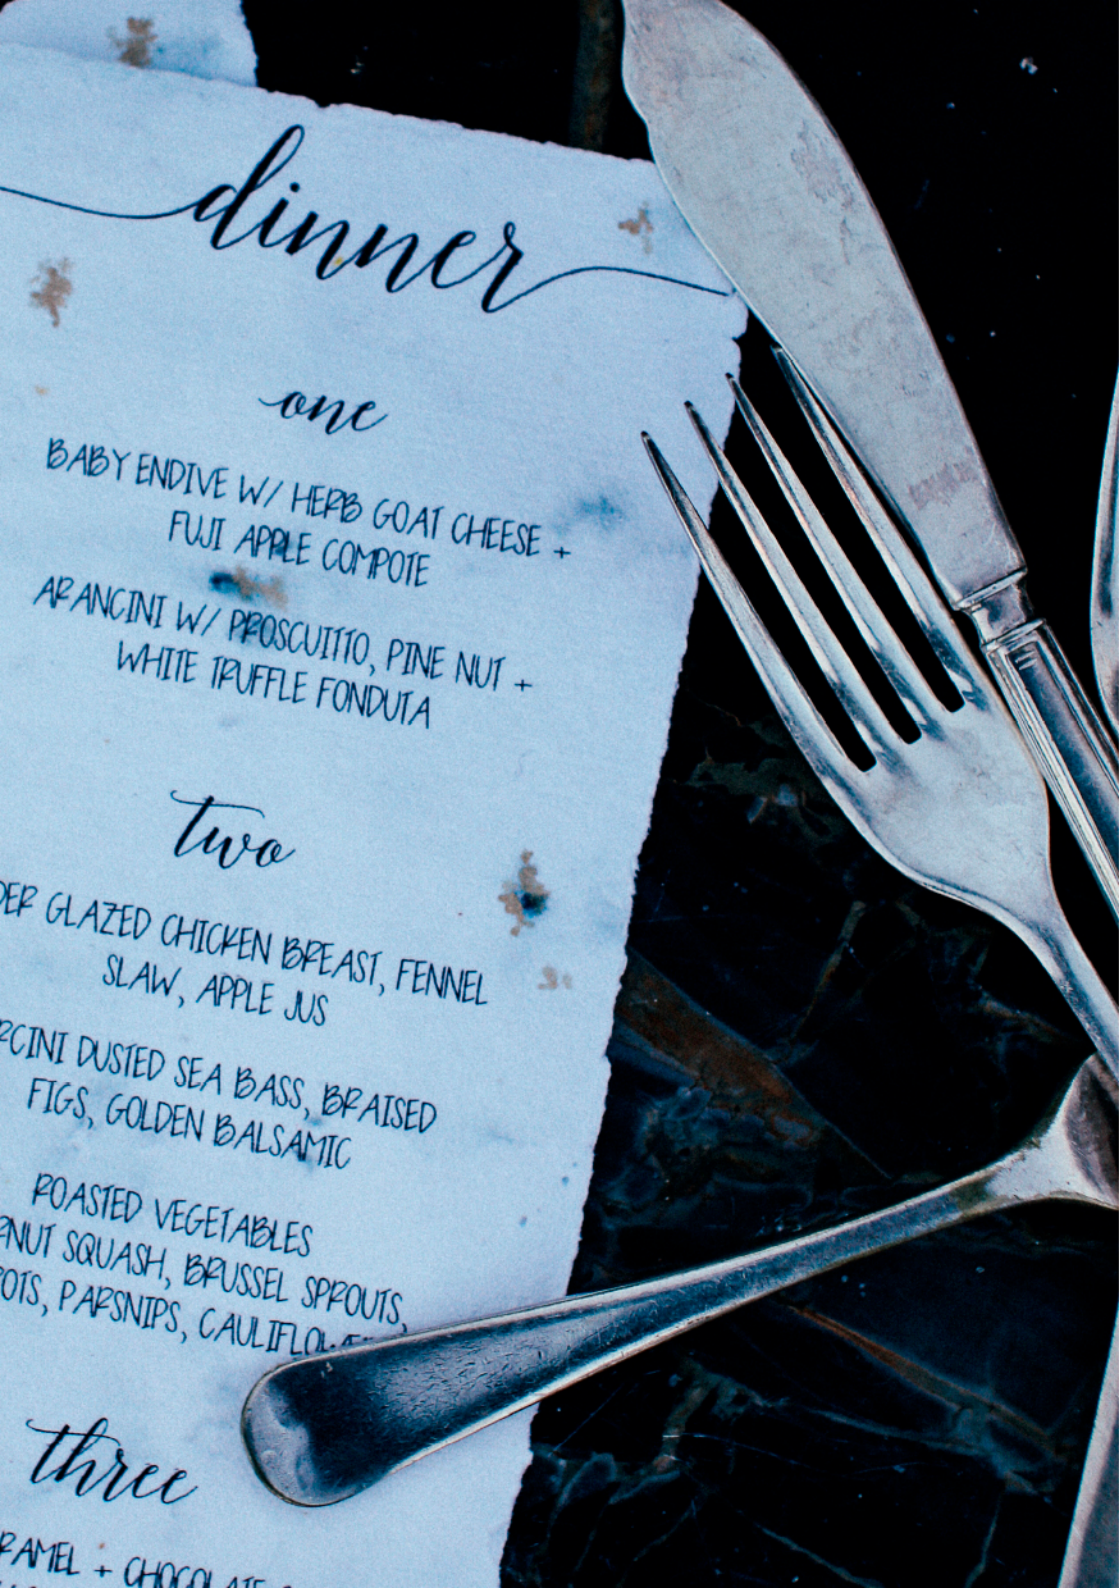 dinner
one
BABY ENDIVE W/ HERB GOAT CHEESE +
FUJI APPLE COMPOTE
ARANCINI W/ PROSCUITTO, PINE NUT +
WHITE TRUFFLE FONDUTA
two
GLAZED CHICKEN BREAST, FENNEL
SLAW, APPLE JUS
DUSTED SEA BASS, BRAISED
FIGS, GOLDEN BALSAMIC
ROASTED VEGETABLES
SQUASH, BRUSSEL SPROUTS,
PARSNIPS, CAULIFLOWER
three
+ CHOCOLATE